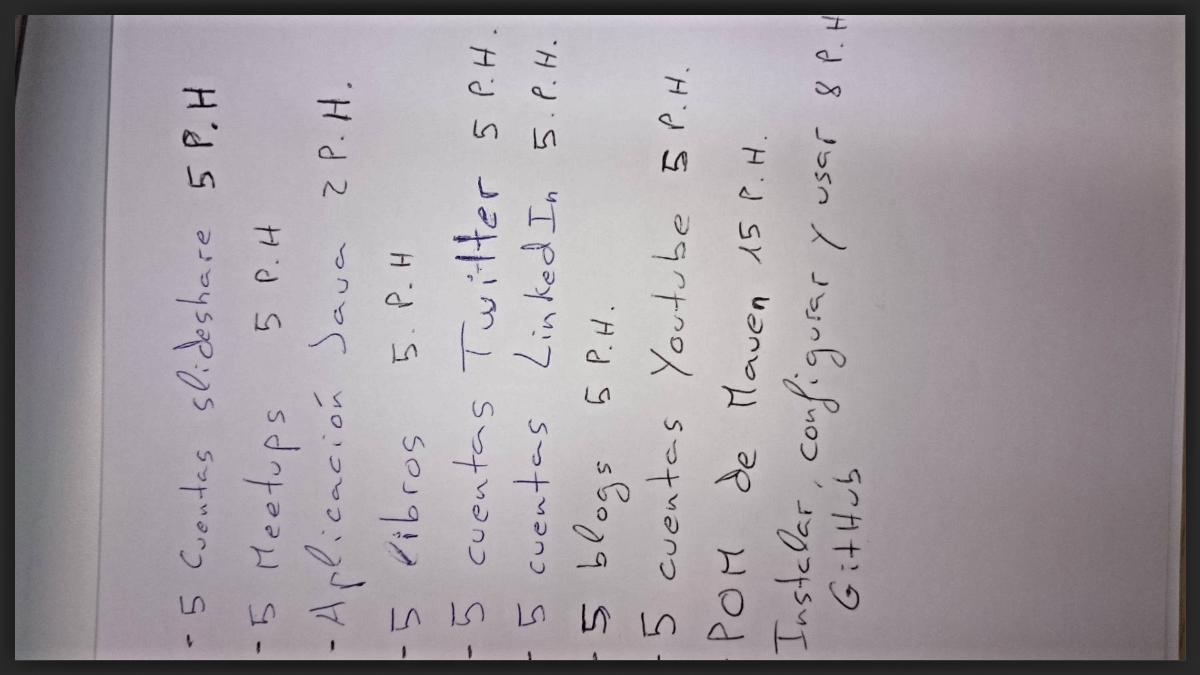 - 5 Cuentas slideshare 5 P.H
- 5 Meetups 5 P.H
- Aplicación Java 2 P.H.
- 5 libros 5. P.H
- 5 cuentas Twitter 5 P.H.
- 5 cuentas LinkedIn 5.P.H.
- 5 blogs 5 P.H.
- 5 cuentas Youtube 5 P.H.
. POM de Maven 15 P.H.
Instalar, configurar y usar 8 P.H
GitHub